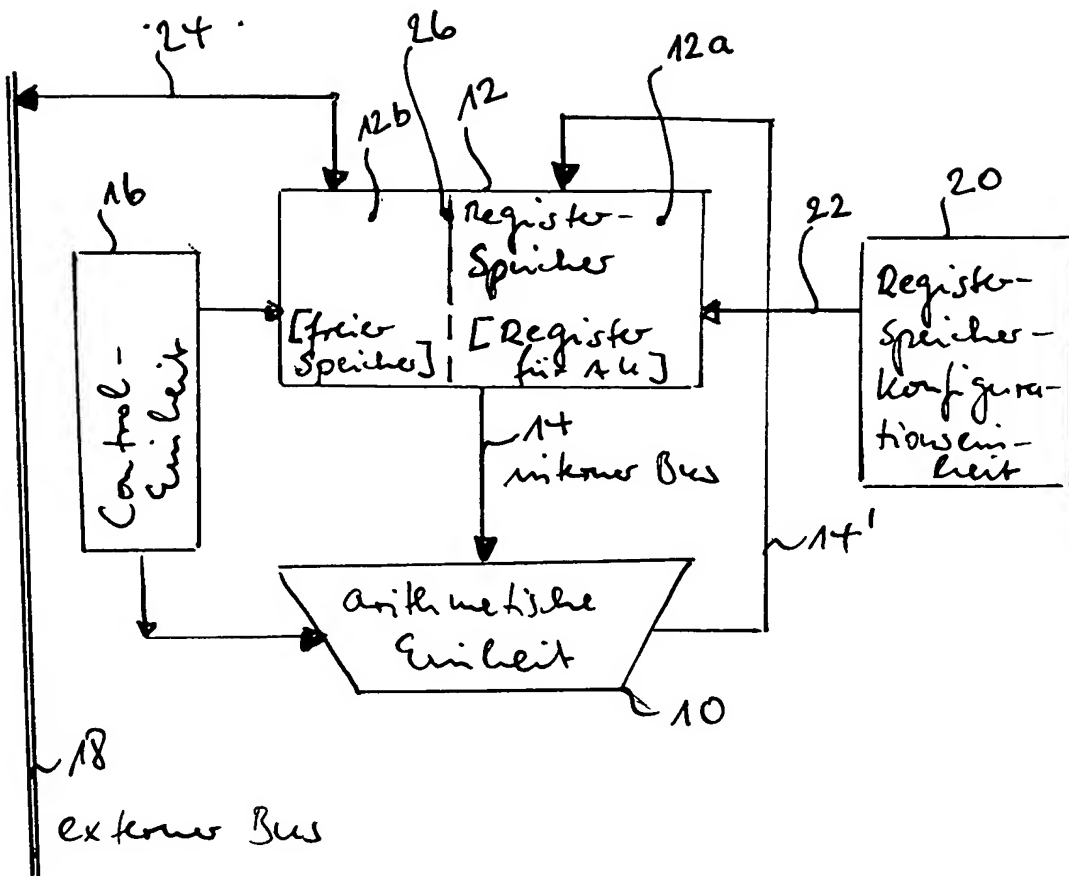 24
26
12a
12b
12
16
20
22
Register-
Speicher
[freier
Speicher]
[Register
für AU]
Control-
Einheit
Register-
Speicher-
Konfigura-
tionsein-
heit
14
interner Bus
14'
arithmetische
Einheit
10
18
externer Bus